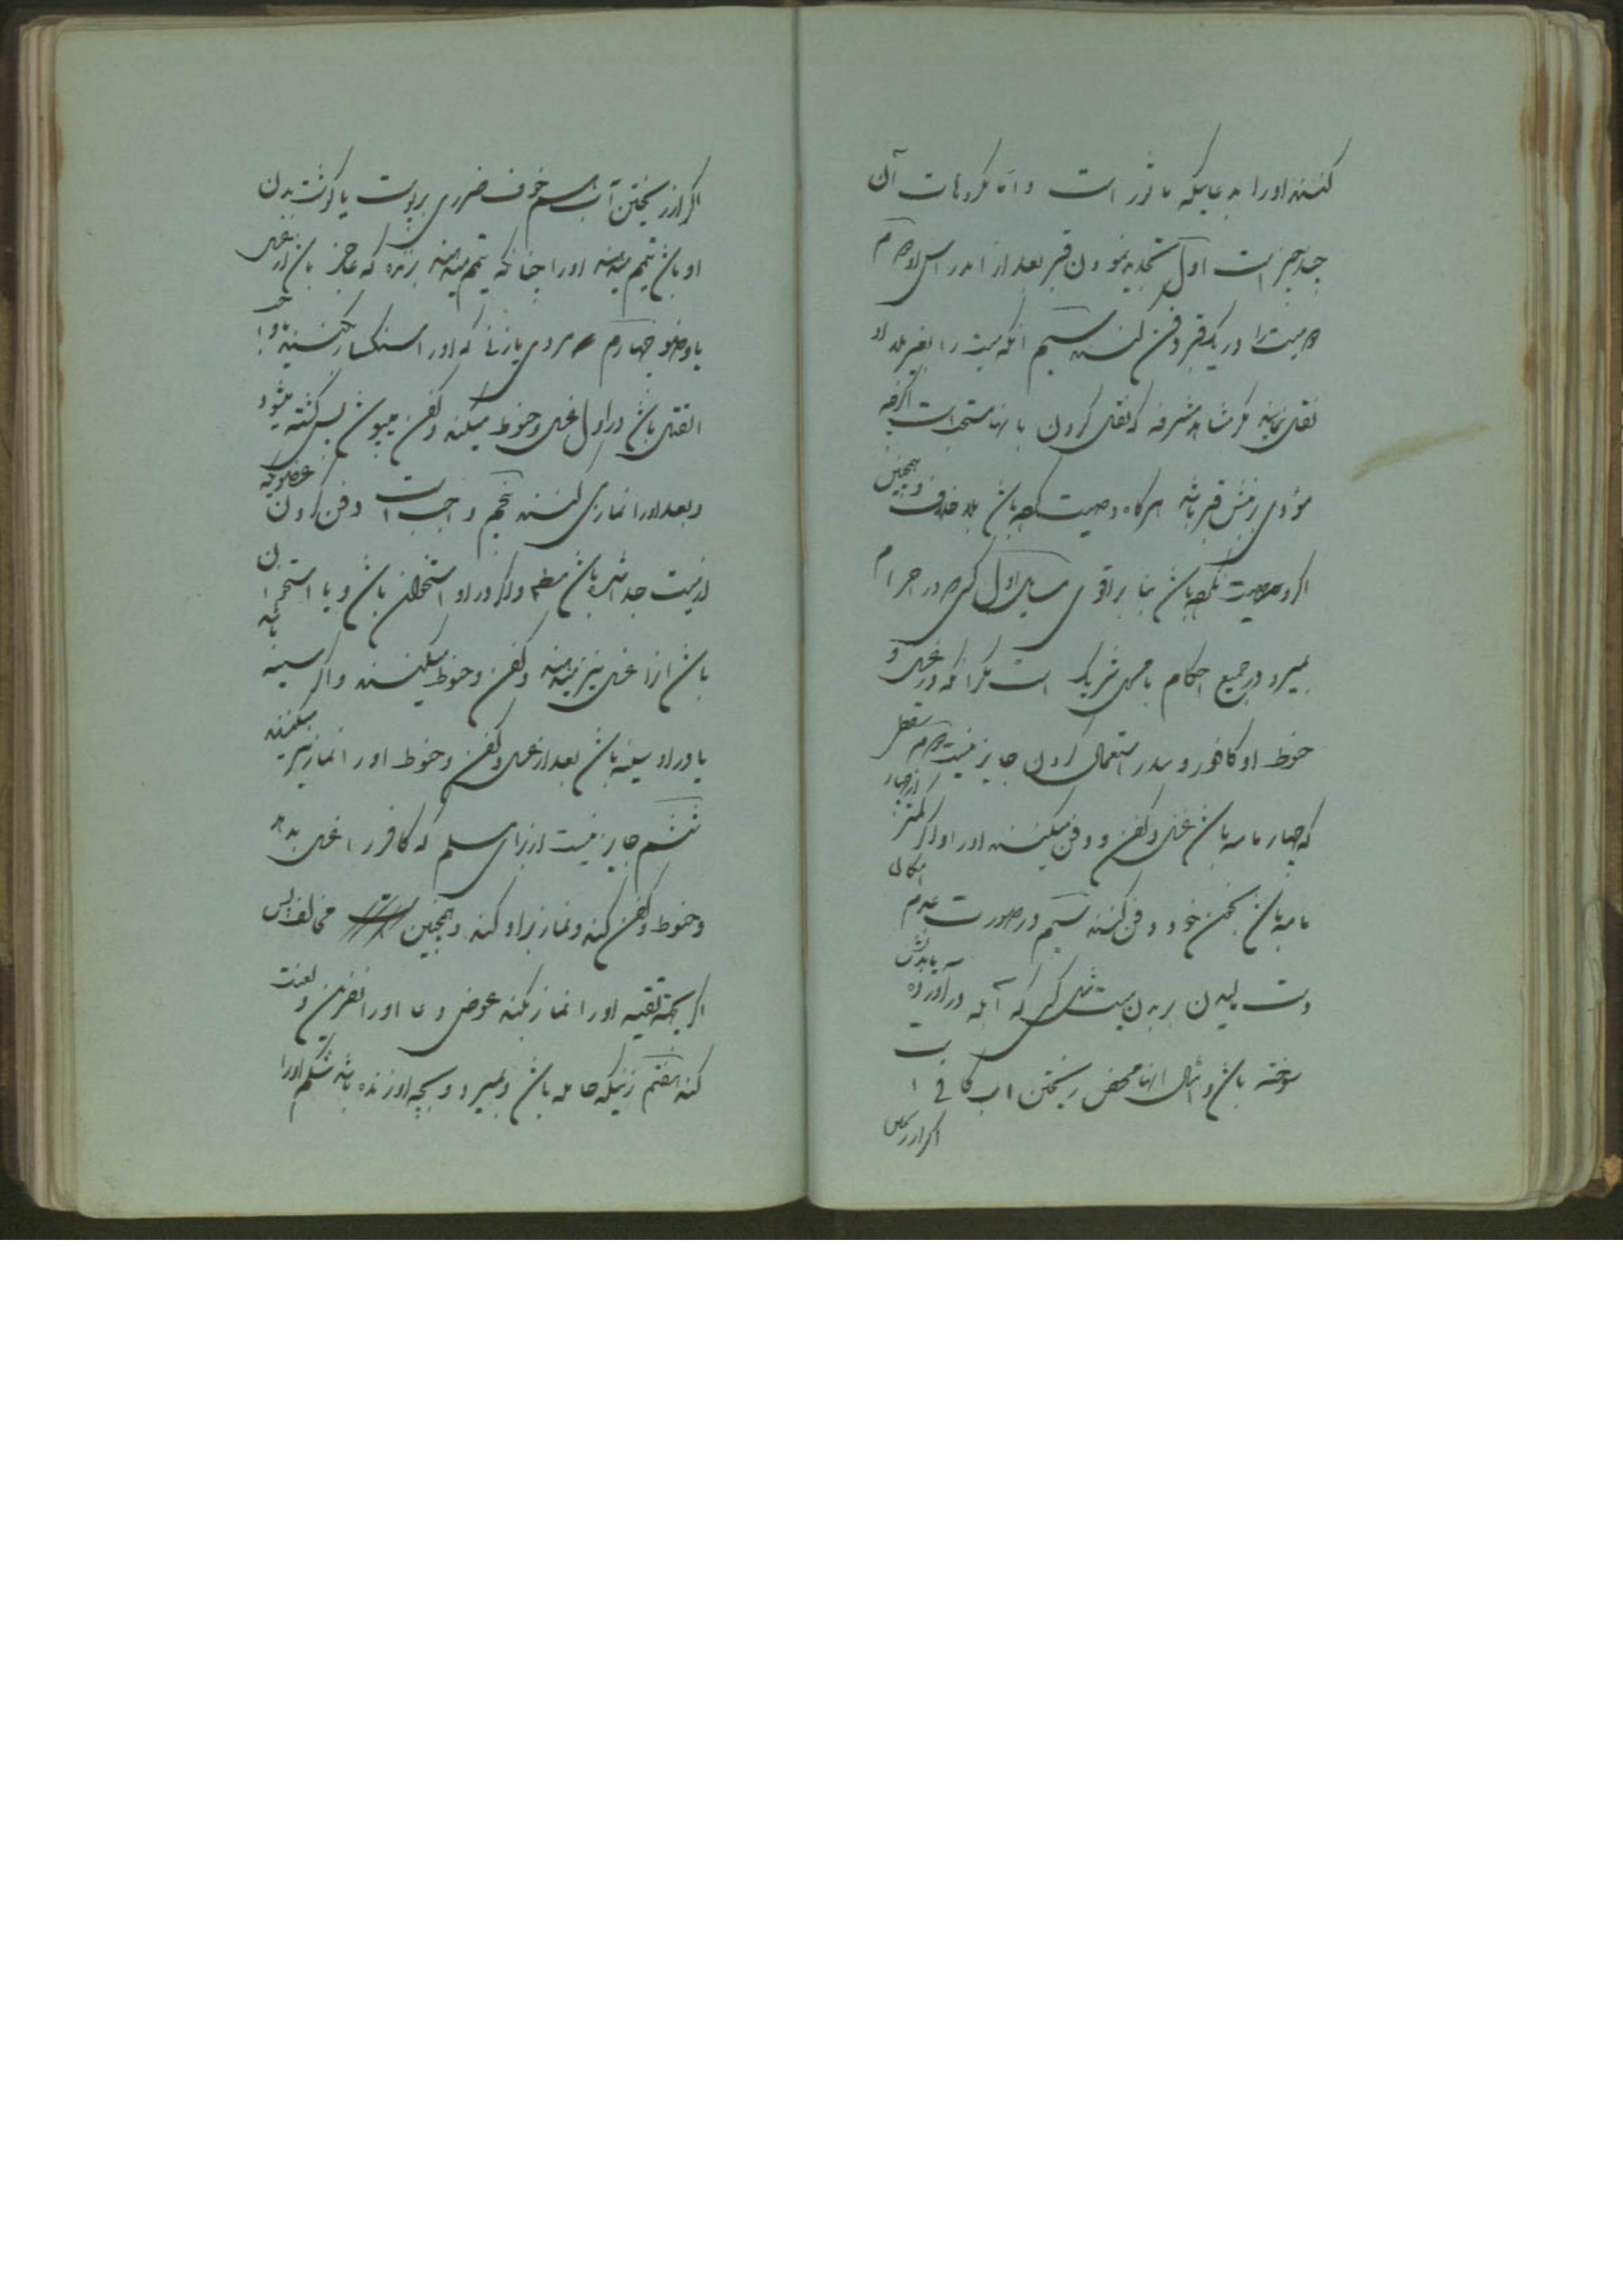 کنند او را بدعائیکه مأثور است و اما مکروهات آن
چند چیز است اول تجدید نمودن قبر بعد از اندراس او دوم
دو میت را در یک قبر دفن کنند سیم آنکه میت را بغیر بلد او
نقل نمایند مگر مشاهد مشرفه که نقل کردن بانها مستحب است اگرچه
مؤدی بنبش قبر باشد هرگاه وصیت کرده باشد بلا خلاف و همچنین
اگر وصیت نکرده باشد بنا بر اقوی مسایل اول کسیکه در احرام
بمیرد در جمیع احکام با محل شریک است مگر آنکه در غسل و
حنوط او کافور و سدر استعمال کردن جایز نیست دوم سقط
که چهار ماهه باشد غسل و کفن و دفن میکنند او را و اگر کمتر از چهار
ماهه باشد بکهن خود دفن کنند سیم در صورت عدم امکان
دست مالیدن بر بدن میت مثل کسی که آبله در آورده یا بدنش
سوخته باشد و امثال اینها محض ریختن آب کافی است
اگر از ریختن
اگر از ریختن آب هم خوف ضرری بر پوست یا گوشت بدن
او باشد تیمم میدهند او را چنانکه تیمم میدهند زنده که عاجز باشد از غسل
یا وضو چهارم مردی یا زنی که او را سنگسار میکنند یا واجب
القتل باشد در اول غسل و حنوط میکند و کفن میپوشد پس کشته میشود
و بعد او را نماز میکنند پنجم واجب است دفن کردن عضویکه
از میت جدا شده باشد مطلقا و اگر در او استخوان باشد و یا استخوان
باشد آنرا غسل نیز میدهند و کفن و حنوط میکنند و اگر سینه
یا در او سینه باشد بعد از غسل و کفن و حنوط او را نماز نیز میکنند
ششم جایز نیست از برای مسلم که کافر را غسل بدهد
و حنوط و کفن کند و نماز بر او کند و همچنین مخالف را پس
اگر بجهة تقیه او را نماز بکند عوض دعا او را نفرین و لعنت
کند هفتم زنیکه حامله باشد و بمیرد و بچه او زنده باشد شکم او را